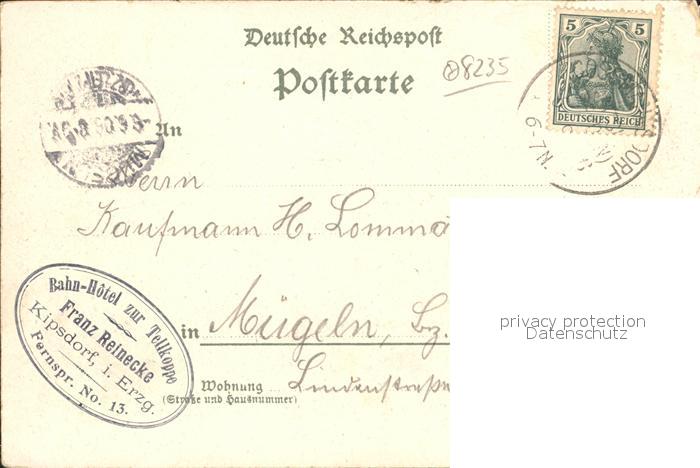 Deutsche Reichspost
Postkarte
8235
5 5
DEUTSCHES REICH
6-7N.
An
Herrn
Kaufmann H. Lomma
in Mügeln, Bz.
Wohnung
(Straße und Hausnummer)
Lindenstraße
Bahn-Hôtel zur Tellkoppe
Franz Reinecke
Kipsdorf, i. Erzg.
Fernspr. No. 13.
privacy protection
Datenschutz